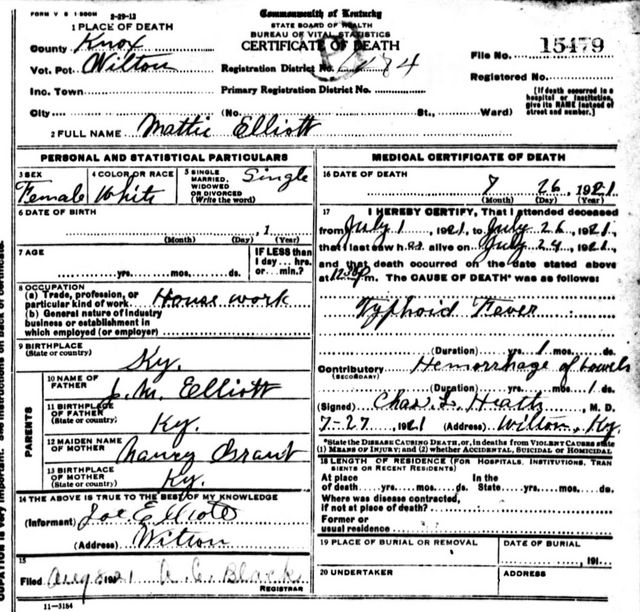 FORM V S 1 500M 2-29-12
Commonwealth of Kentucky
STATE BOARD OF HEALTH
BUREAU OF VITAL STATISTICS
CERTIFICATE OF DEATH
1 PLACE OF DEATH
County Knox
Vot. Pct. Wilton
Inc. Town
City (No. St., Ward)
Registration District No.
Primary Registration District No.
File No. 15479
Registered No.
[If death occurred in a hospital or institution, give its NAME instead of street and number.]
2 FULL NAME Mattie Elliott
PERSONAL AND STATISTICAL PARTICULARS
3 SEX Female
4 COLOR OR RACE White
5 SINGLE, MARRIED, WIDOWED OR DIVORCED (Write the word) Single
6 DATE OF BIRTH
, 1
(Month) (Day) (Year)
7 AGE
yrs. mos. ds.
IF LESS than 1 day... hrs. or... min.?
8 OCCUPATION
(a) Trade, profession, or particular kind of work House work
(b) General nature of industry business or establishment in which employed (or employer)
9 BIRTHPLACE (State or country) Ky.
PARENTS
10 NAME OF FATHER J. M. Elliott
11 BIRTHPLACE OF FATHER (State or country) Ky.
12 MAIDEN NAME OF MOTHER Nancy Grant
13 BIRTHPLACE OF MOTHER (State or country) Ky.
14 THE ABOVE IS TRUE TO THE BEST OF MY KNOWLEDGE
(Informant) Joe Elliott
(Address) Wilton
15
Filed Aug 8 1921 A. C. Black
REGISTRAR
11-3184
MEDICAL CERTIFICATE OF DEATH
16 DATE OF DEATH
7 26, 1921
(Month) (Day) (Year)
17 I HEREBY CERTIFY, That I attended deceased
from July 1, 1921, to July 26, 1921,
that I last saw her alive on July 24, 1921,
and that death occurred on the date stated above
at 12:30 P.m. The CAUSE OF DEATH* was as follows:
Typhoid Fever
(Duration) yrs. 1 mos. ds.
Contributory (SECONDARY) Hemorrhage of bowels
(Duration) yrs. mos. 1 ds.
(Signed) Chas. L. Heath, M. D.
7-27, 1921 (Address) Wilton, Ky.
*State the DISEASE CAUSING DEATH, or, in deaths from VIOLENT CAUSES state (1) MEANS OF INJURY; and (2) whether ACCIDENTAL, SUICIDAL OR HOMICIDAL
18 LENGTH OF RESIDENCE (FOR HOSPITALS, INSTITUTIONS, TRANSIENTS OR RECENT RESIDENTS)
At place of death yrs. mos. ds. In the State yrs. mos. ds.
Where was disease contracted, if not at place of death?
Former or usual residence
19 PLACE OF BURIAL OR REMOVAL
DATE OF BURIAL
, 191
20 UNDERTAKER
ADDRESS